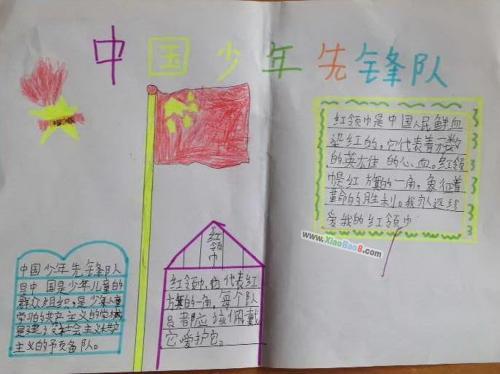 中国少年先锋队
红领巾是中国人民鲜血
染红的。它代表着无数
的英雄 的心血。红领
巾是红旗的一角。象征着
革命的胜利。我永远
爱我的红领巾
www.XiaoBao8.com
红领巾
红领巾,它代表红
旗的一角,每个队
员都应该佩戴
它爱护它。
中国少年先锋队
是中国是少年儿童的
群众组织。是少年儿童
学习的共产主义的学校
是建 社会主义共产
主义的予备队。